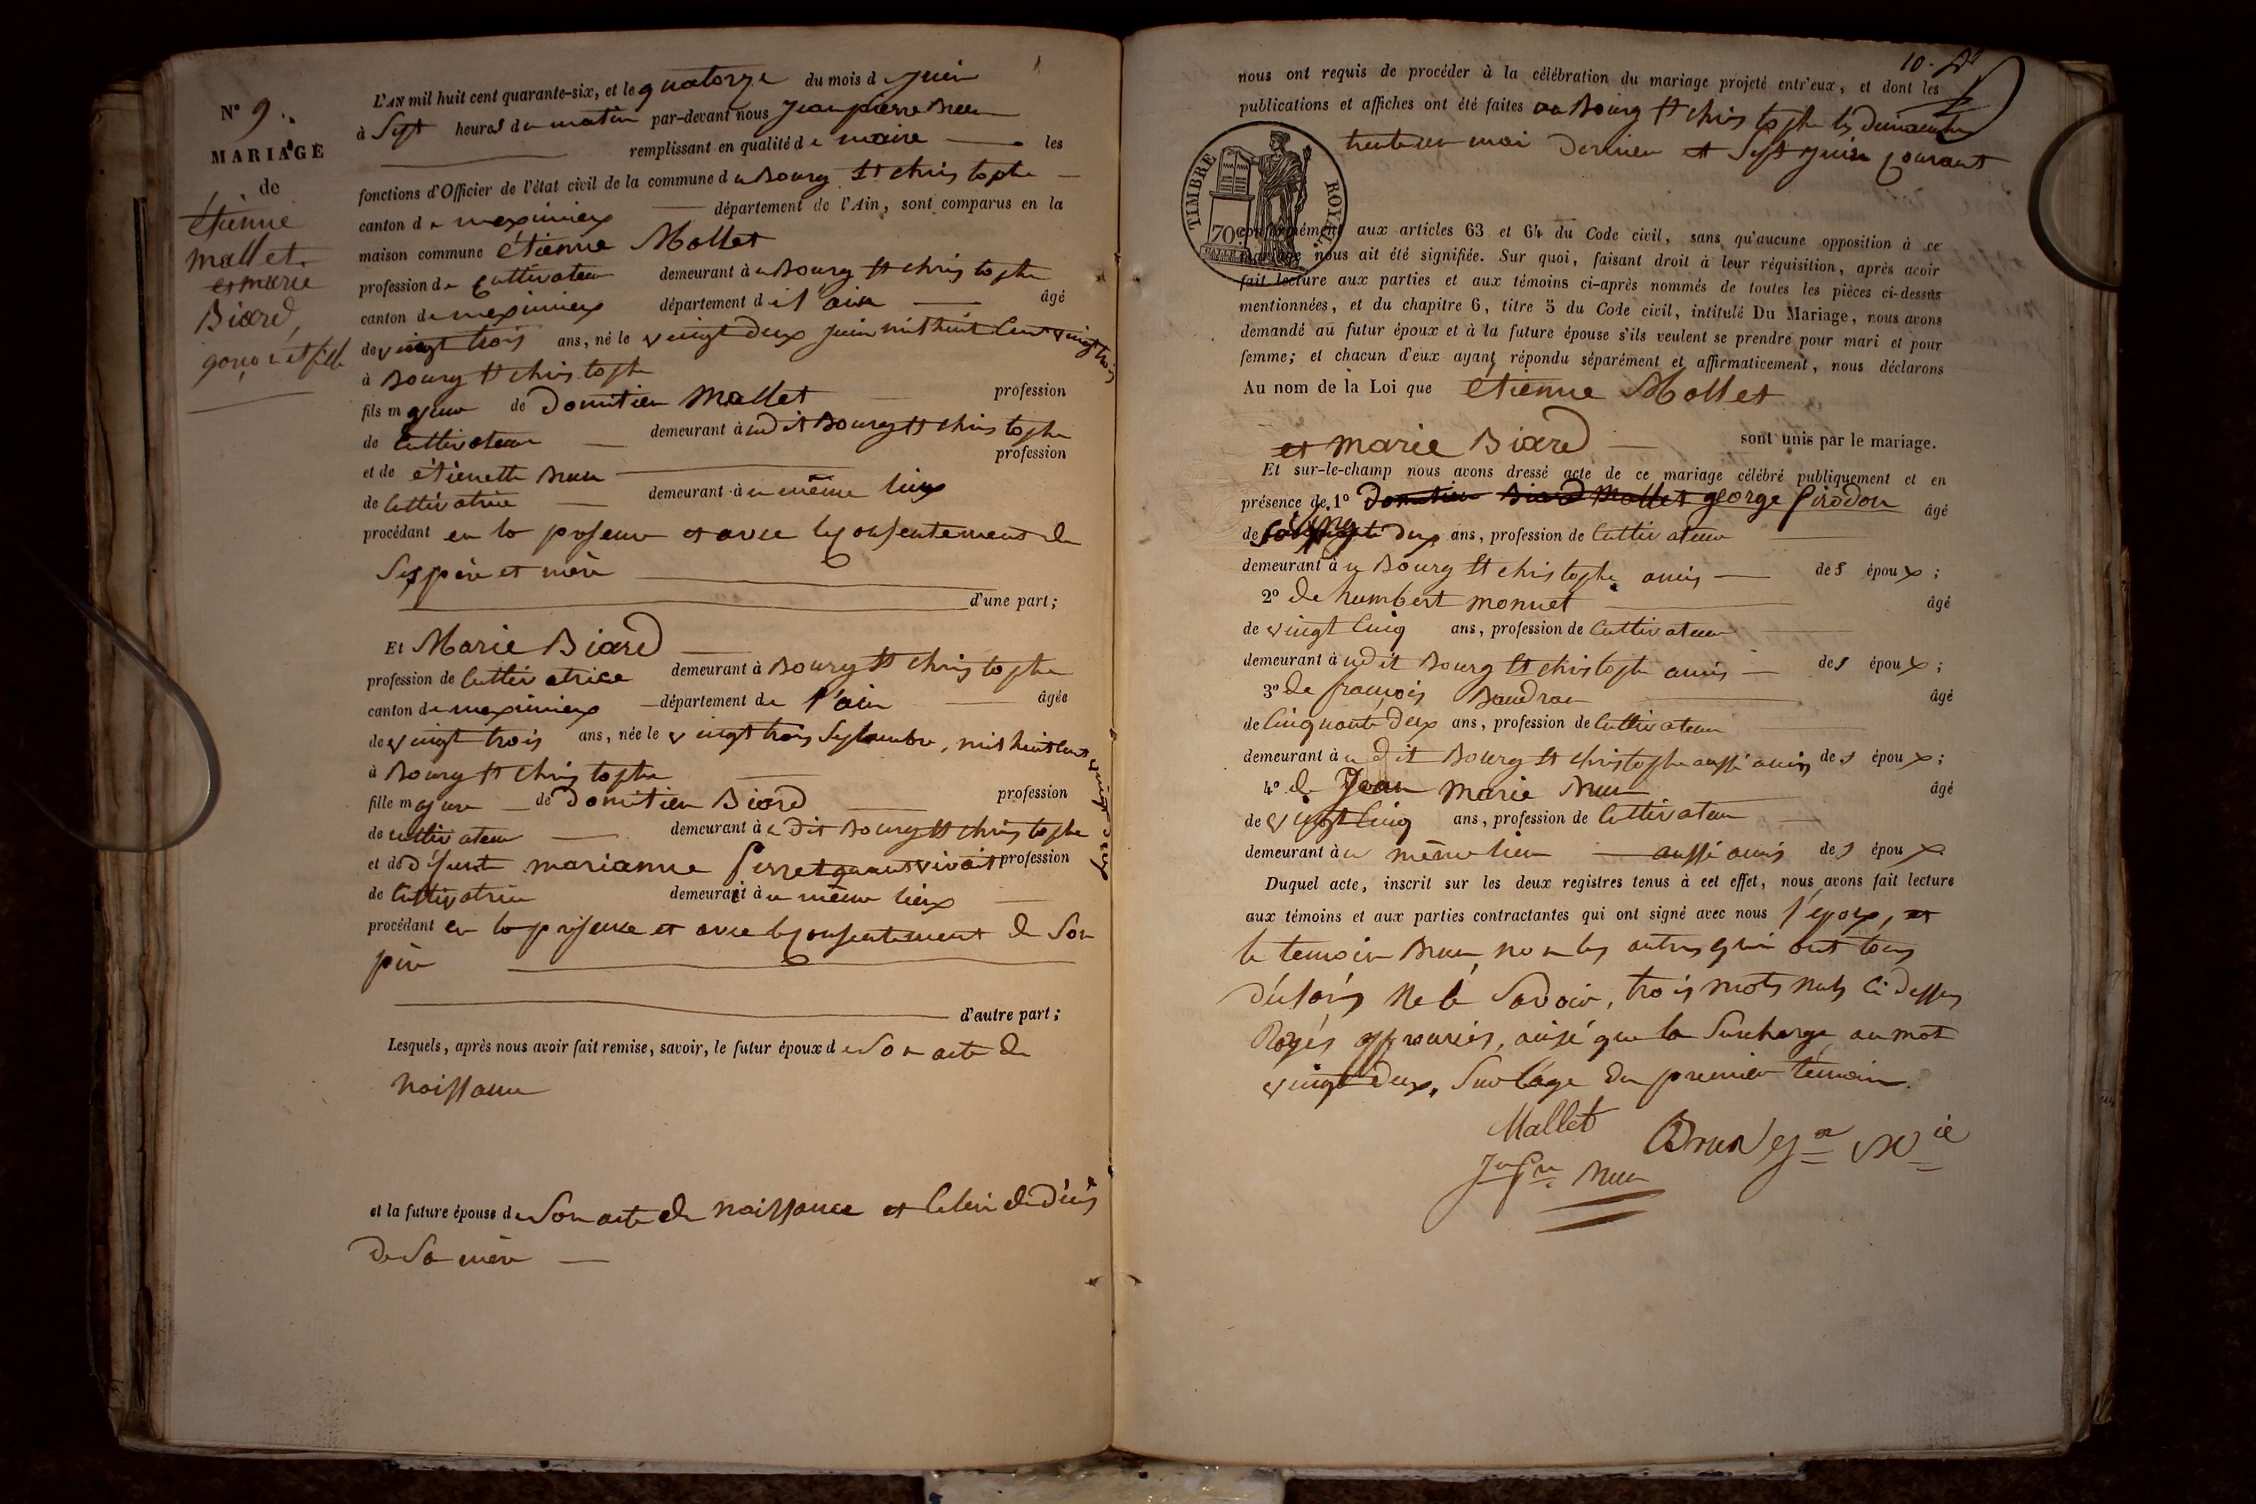 N.o 9.
MARIAGE
de
étienne
mallet
et marie
Biard,
garçon et fille
L'AN mil huit cent quarante-six, et le quatorze du mois de juin
à Sept heures du matin par-devant nous Jean pierre Brun
remplissant en qualité de maire les
fonctions d'Officier de l'état civil de la commune du Bourg St christophe
canton de meximieux département de l'Ain, sont comparus en la
maison commune étienne Mollet
profession de Cultivateur demeurant à u Bourg St christophe
canton de meximieux département de l'ain âgé
de vingt trois ans, né le vingt deux juin mil huit Cent vingt trois
à Bourg St christophe
fils majeur de Domitien Mallet profession
de Cultivateur demeurant à udit Bourg St christophe
et de étienette Brun profession
de Cultivatrice demeurant à u même lieux
procédant en la presence et avec le Consentement de
Ses père et mère
d'une part;
Et Marie Biard
profession de Cultivatrice demeurant à Bourg St christophe
canton de meximieux département de l'ain âgée
de vingt trois ans, née le vingt trois Septembre, mil huit Cent vingt deux
à Bourg St christophe
fille majeure de Domitien Biard profession
de cultivateur demeurant à udit Bourg St christophe
et de Défunte marianne Perret quant vivait profession
de Cultivatrice demeurait à u même lieux
procédant en la présence et avec le Consentement de Son
père
d'autre part;
Lesquels, après nous avoir fait remise, savoir, le futur époux de Son acte de
Naissance
et la future épouse de Son acte de Naissance et Celui de Décès
De Sa mère
10. 
nous ont requis de procéder à la célébration du mariage projeté entr'eux, et dont les
publications et affiches ont été faites au Bourg St christophe les Dimanches
trente un mai Dernier et Sept juin Courant
TIMBRE ROYAL
70c
conformément aux articles 63 et 64 du Code civil, sans qu'aucune opposition à ce
mariage nous ait été signifiée. Sur quoi, faisant droit à leur réquisition, après avoir
fait lecture aux parties et aux témoins ci-après nommés de toutes les pièces ci-dessus
mentionnées, et du chapitre 6, titre 5 du Code civil, intitulé Du Mariage, nous avons
demandé au futur époux et à la future épouse s'ils veulent se prendre pour mari et pour
femme; et chacun d'eux ayant répondu séparément et affirmativement, nous déclarons
Au nom de la Loi que Etienne Mollet
et marie Biard sont unis par le mariage.
Et sur-le-champ nous avons dressé acte de ce mariage célébré publiquement et en
présence de 1o Domitien Biard Mallet george Girodon âgé
de vingt deux ans, profession de Cultivateur
demeurant à u Bourg St christophe amis des époux;
2o de humbert monnet âgé
de vingt Cinq ans, profession de Cultivateur
demeurant à udit Bourg St christophe amis des époux;
3o de françois Baudran âgé
de Cinquante Deux ans, profession de Cultivateur
demeurant à udit Bourg St christophe aussi amis des époux;
4o de Jean Marie Brun âgé
de vingt Cinq ans, profession de Cultivateur
demeurant à u même lieu aussi amis des époux
Duquel acte, inscrit sur les deux registres tenus à cet effet, nous avons fait lecture
aux témoins et aux parties contractantes qui ont signé avec nous l'epoux, et
le temoin Brun, non les autres qui ont tous
Déclarés Ne le Savoir, trois mots nuls Ci dessus
Rayés approuvés, ainsi que la Surcharge au mot
vingt deux, Sur l'age du premier témoin.
Mallet Brun
Brun